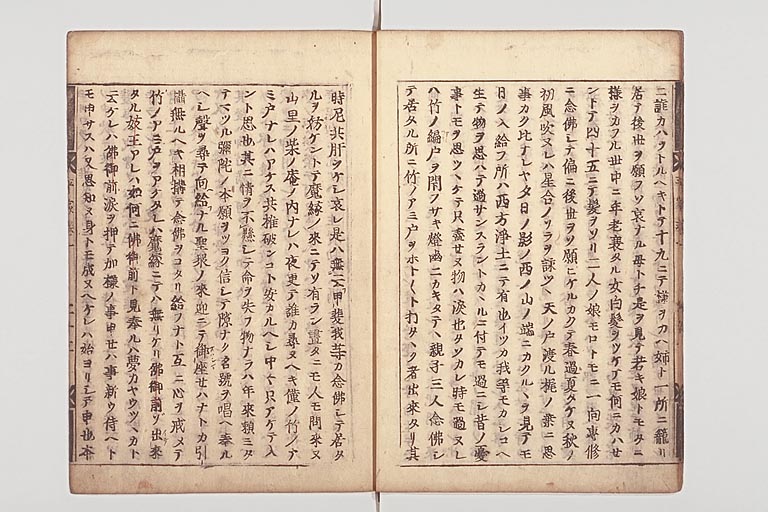 ニ誰カハヲトルヘキトテ十九ニテ様ヲカハ姉ト一所ニ籠リ
居テ後世ヲ願フソ哀ナル母トチ是ヲ見テ若キ娘トモタニ
様ヲカフル世中ニ年老衰タル女白髪ヲツケテモ何ニカハセ
ントテ四十五ニテ髪ヲソリ二人ノ娘モロトモニ一向専修
ニ念佛シテ偏ニ後世ヲソ願ヒケルカクテ春過夏タケヌ秋ノ
初風吹ヌレハ星合ノソラヲ詠ツヽ天ノ戸渡ル梶ノ葉ニ思
事カク比ナレヤ夕日ノ影ノ西ノ山ノ端ニカクルヽヲ見テモ
日ノ入給フ所ハ西方浄土ニテ有也イツカ我等モカレコヘ
生テ物ヲ思ハテ過サンスラントカヽルニ付テモ過ニシ昔ノ憂
事トモヲ思ツヽケテ只盡セヌ物ハ涙也タソカレ時モ過ヌレ
ハ竹ノ編戸ヲ閉フサキ燈幽ニカキタテヽ親子三人念佛シ
テ居タル所ニ竹ノアミ戸ヲホトホトト打タヽク者出來タリ其
時尼共肝ヲケシ哀レ是ハ無云甲斐我等カ念佛シテ居タ
ルヲ妨ケントテ魔縁ノ來ニテソ有ラン晝タニモ人モ問來ヌ
山里ノ柴ノ庵ノ内ナレハ夜更テ誰カ尋ヌヘキ僅ノ竹ノア
ミ戸ナレハアケス共推破ンコト安カルヘシ中々只アケテ入
ント思也其ニ情ヲ不懸シテ命ヲ失フ物ナラハ年來頼ミタ
テマツル彌陀ノ本願ヲツヨク信シテ隙ナク名號ヲ唱ヘ奉ル
ヘシ聲ヲ尋テ向給ナル聖衆ノ來迎ニテ御座セハナトカ引
攝無ルヘキ相構テ念佛ヲコタリ給フナト互ニ心ヲ戒メテ
竹ノアミ戸ヲアケタレハ魔縁ニテハ無リケリ佛御前ソ出來
タル妓王アレハ如何ニ佛御前ト見奉ルハ夢カヤウツヽカト
云ケレハ佛御前涙ヲ押テ加様ノ事申セハ事新ウ侍ヘト
モ申サスハ又思知ヌ身トモ成ヌヘケレハ始ヨリシテ申也本